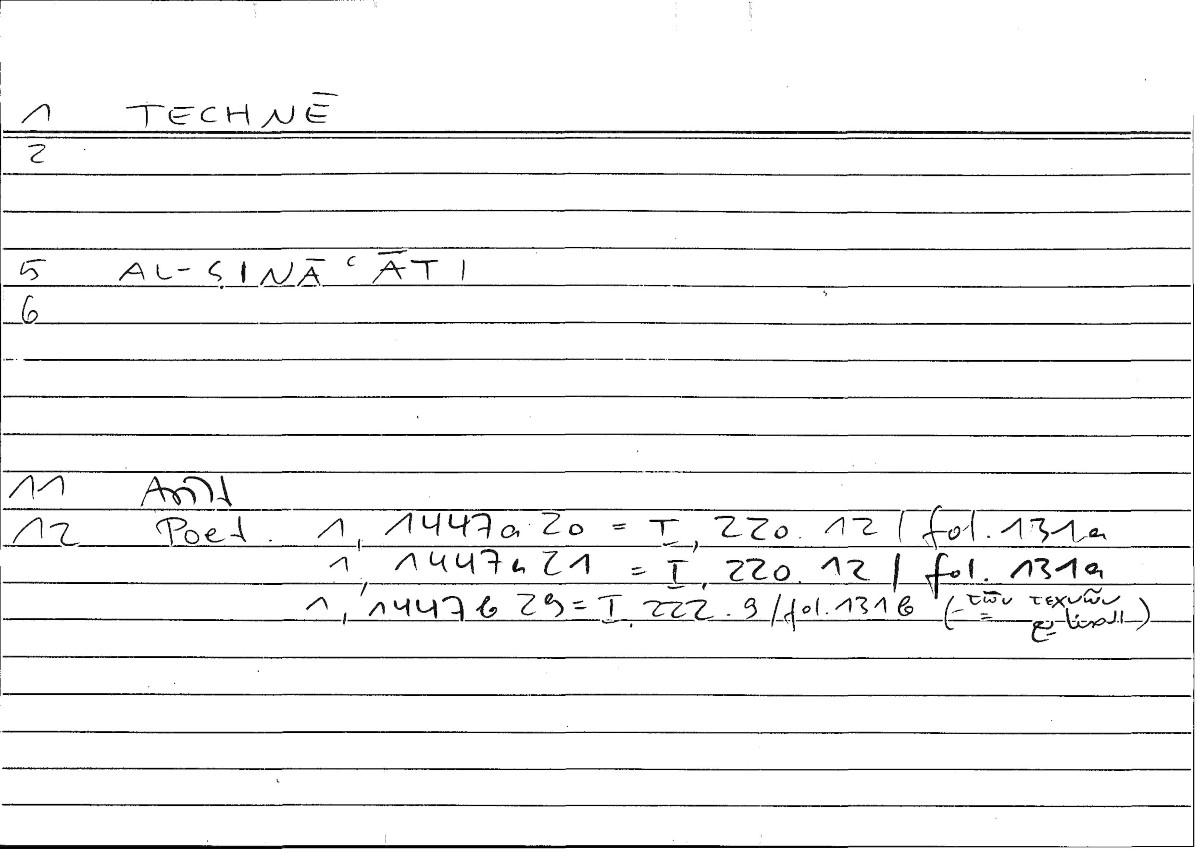 1 TECHNĒ
2
5 AL-ṢINĀʿĀTI
6
11 Arist
12 Poet. 1, 1447a 20 = I, 220.12 / fol. 131a
1, 1447a 21 = I, 220.12 / fol. 131a
1, 1447b 29 = I, 222.9 / fol. 131b (τῶν τεχνῶν = الصنايع)